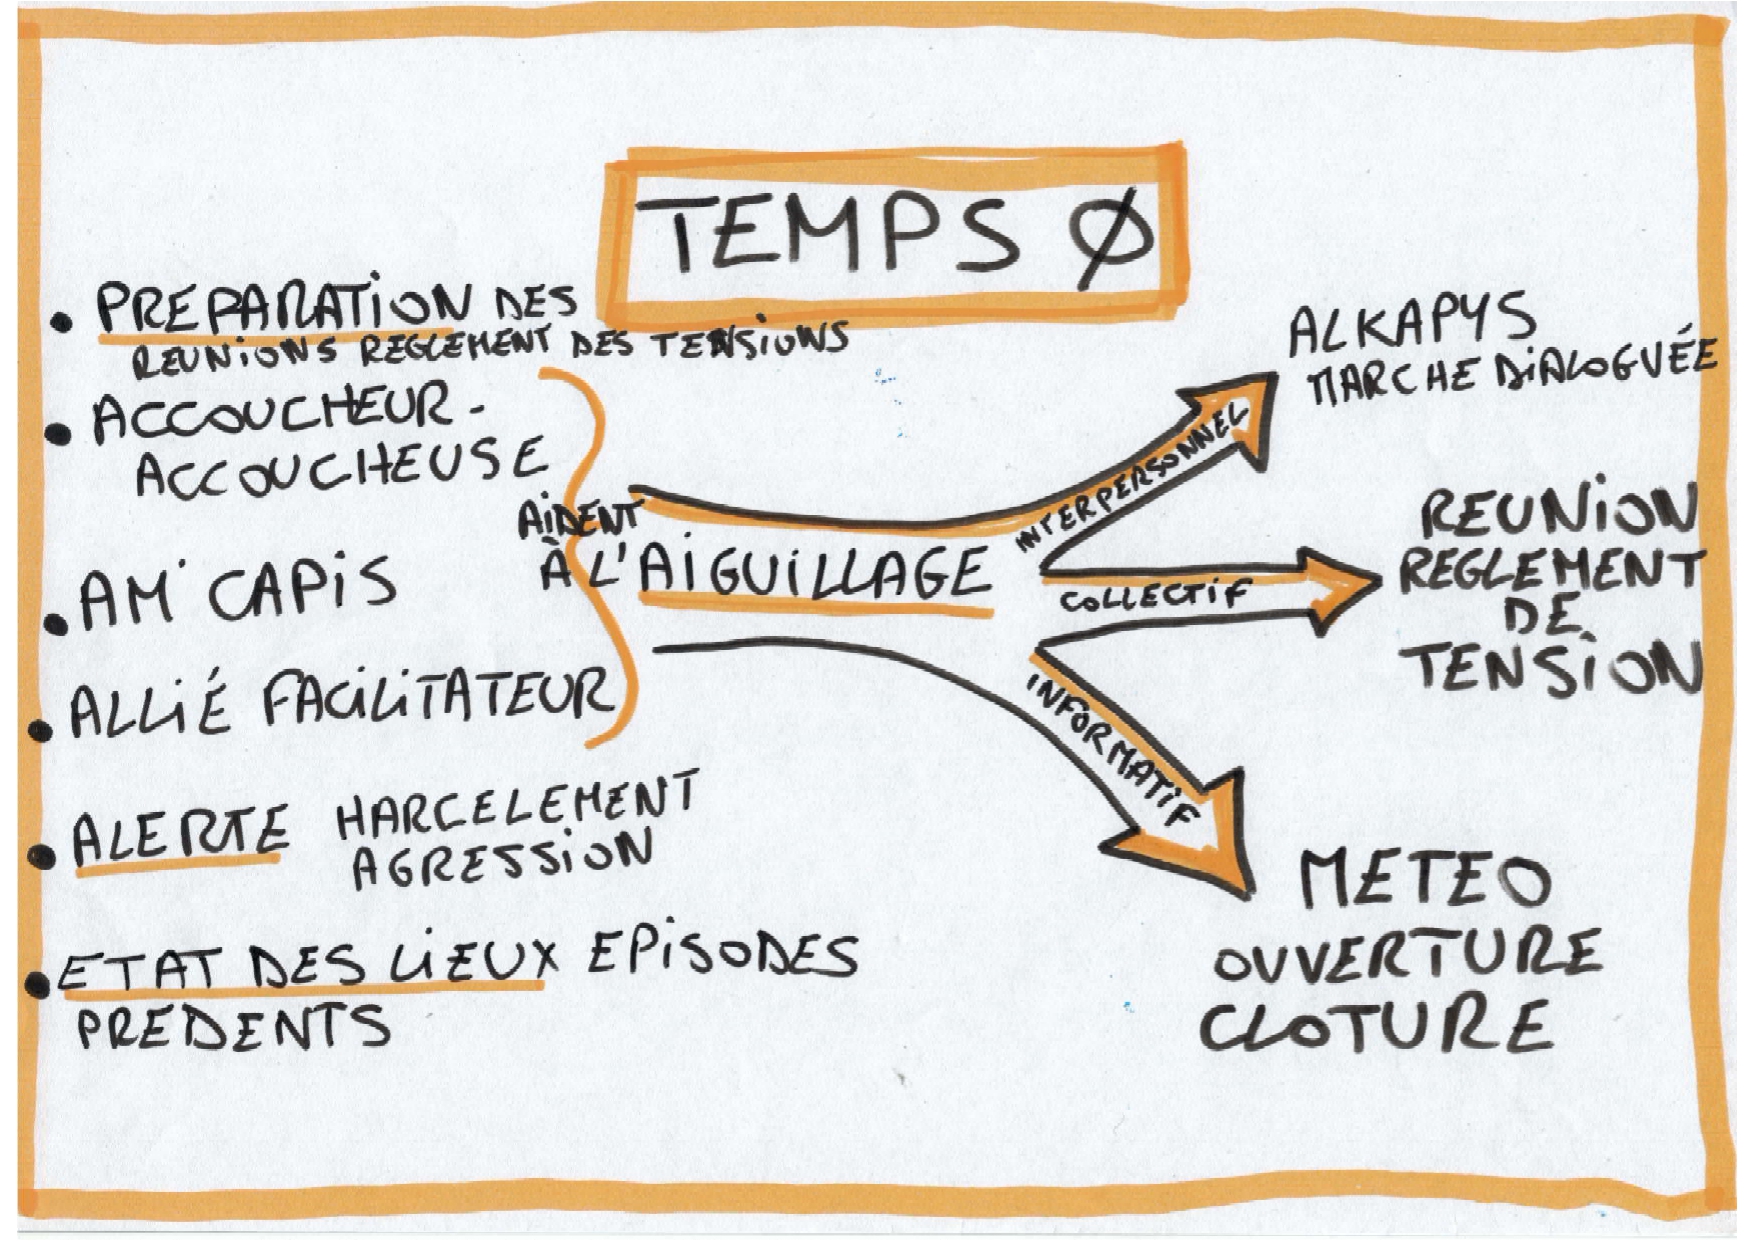 TEMPS Ø
• PREPARATION DES
REUNIONS REGLEMENT DES TENSIONS
• ACCOUCHEUR -
ACCOUCHEUSE
• AM'CAPIS
• ALLIÉ FACILITATEUR
• ALERTE HARCELEMENT
AGRESSION
• ETAT DES LIEUX EPISODES
PREDENTS
AIDENT
À L'AIGUILLAGE
INTERPERSONNEL
ALKAPYS
MARCHE DIALOGUÉE
COLLECTIF
REUNION
REGLEMENT
DE
TENSION
INFORMATIF
METEO
OUVERTURE
CLOTURE